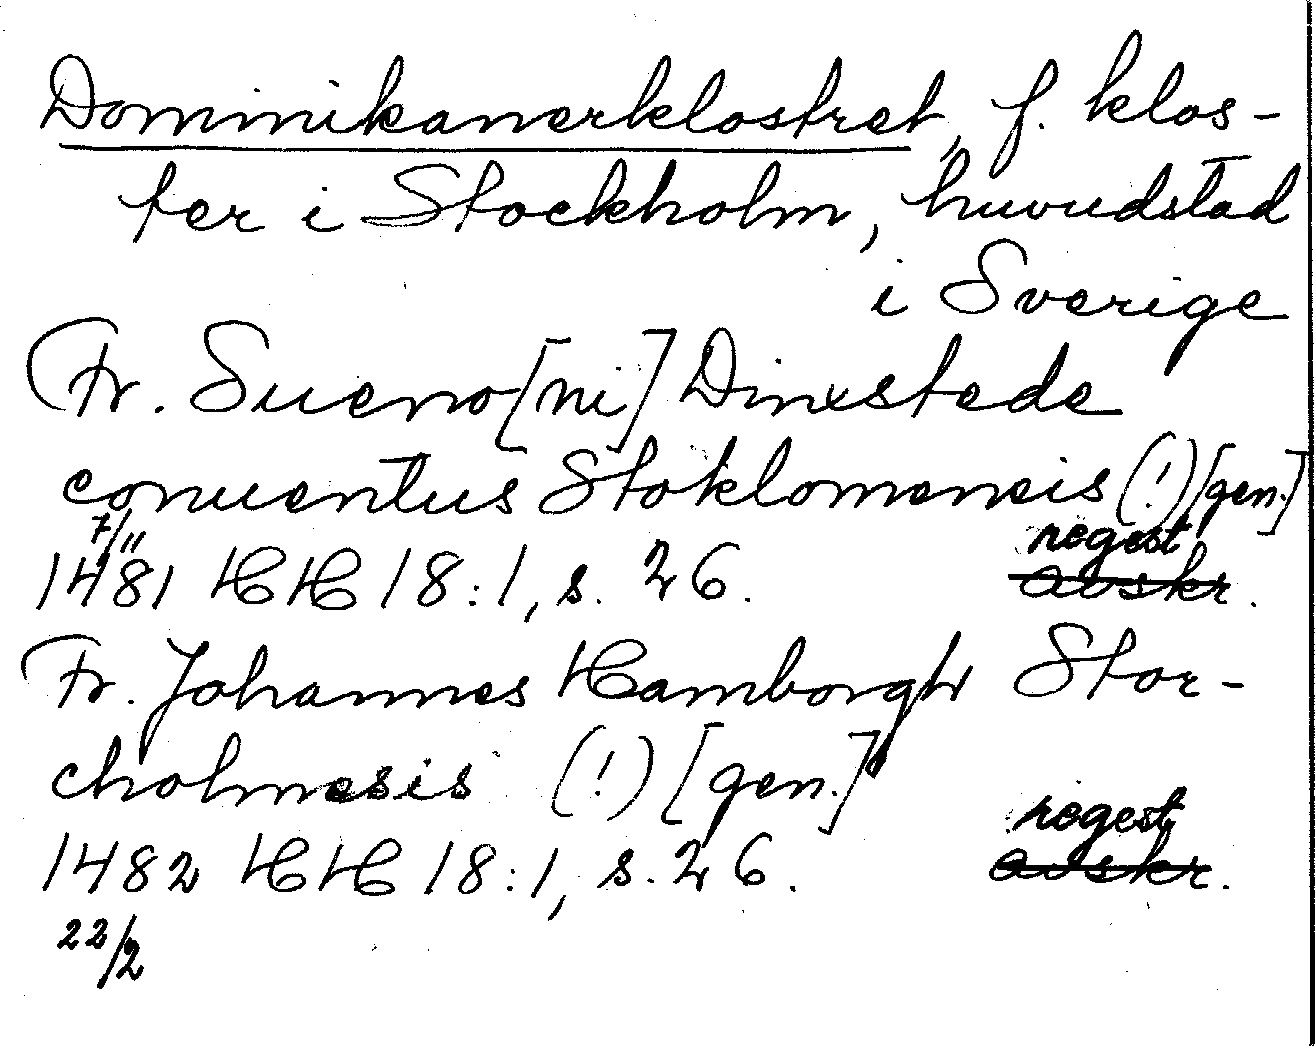 Dominikanerklostret, f. klos-
ter i Stockholm, huvudstad
i Sverige
Fr. Sueno[ni] Dinxstede
conuentus Stoklomensis (!) [gen.]
7/11 regest
1481 HH 18:1, s. 26. avskr.
Fr. Johannes Hamborgh Stor-
cholmesis (!) [gen.]
regest
1482 HH 18:1, s. 26. avskr.
22/2